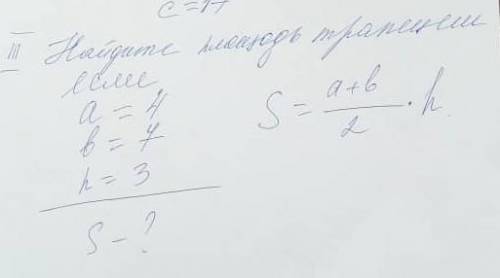 III Найдите площадь трапеции
если
a = 4
b = 7
h = 3
S - ?
S = \frac{a+b}{2} · h